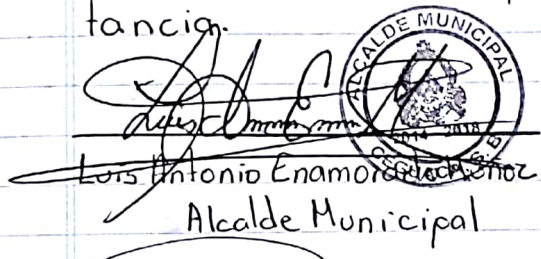 tancia.
ALCALDE MUNICIPAL
2014 2018
Luis Antonio Enamorado Muñoz
Alcalde Municipal